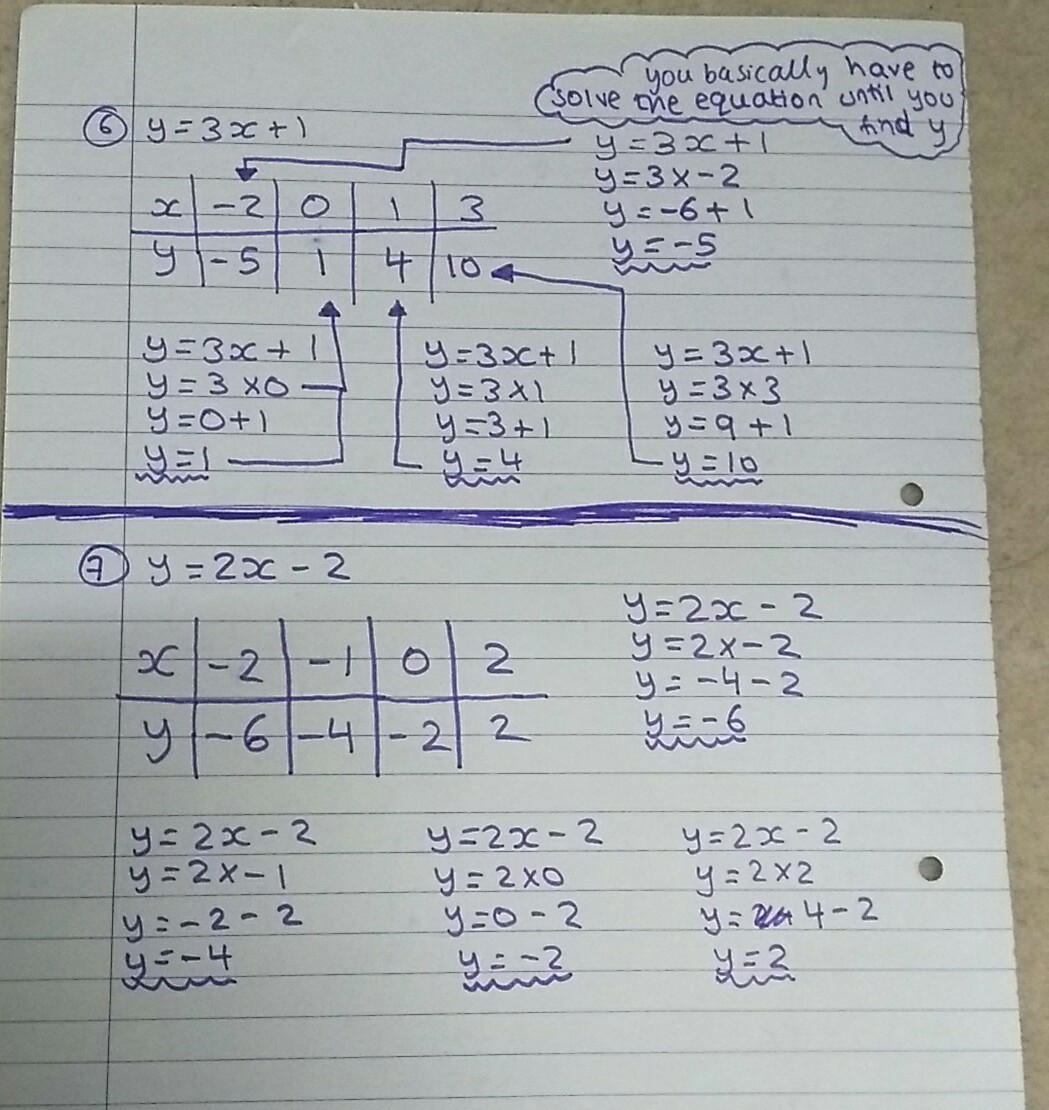 you basically have to
solve the equation until you
find y
⑥ y = 3x + 1
y = 3x + 1
y = 3 × -2
y = -6 + 1
y = -5
x | -2 | 0 | 1 | 3
y | -5 | 1 | 4 | 10
y = 3x + 1
y = 3 × 0
y = 0 + 1
y = 1
y = 3x + 1
y = 3 × 1
y = 3 + 1
y = 4
y = 3x + 1
y = 3 × 3
y = 9 + 1
y = 10
⑦ y = 2x - 2
x | -2 | -1 | 0 | 2
y | -6 | -4 | -2 | 2
y = 2x - 2
y = 2 × -2
y = -4 - 2
y = -6
y = 2x - 2
y = 2 × -1
y = -2 - 2
y = -4
y = 2x - 2
y = 2 × 0
y = 0 - 2
y = -2
y = 2x - 2
y = 2 × 2
y = 4 - 2
y = 2